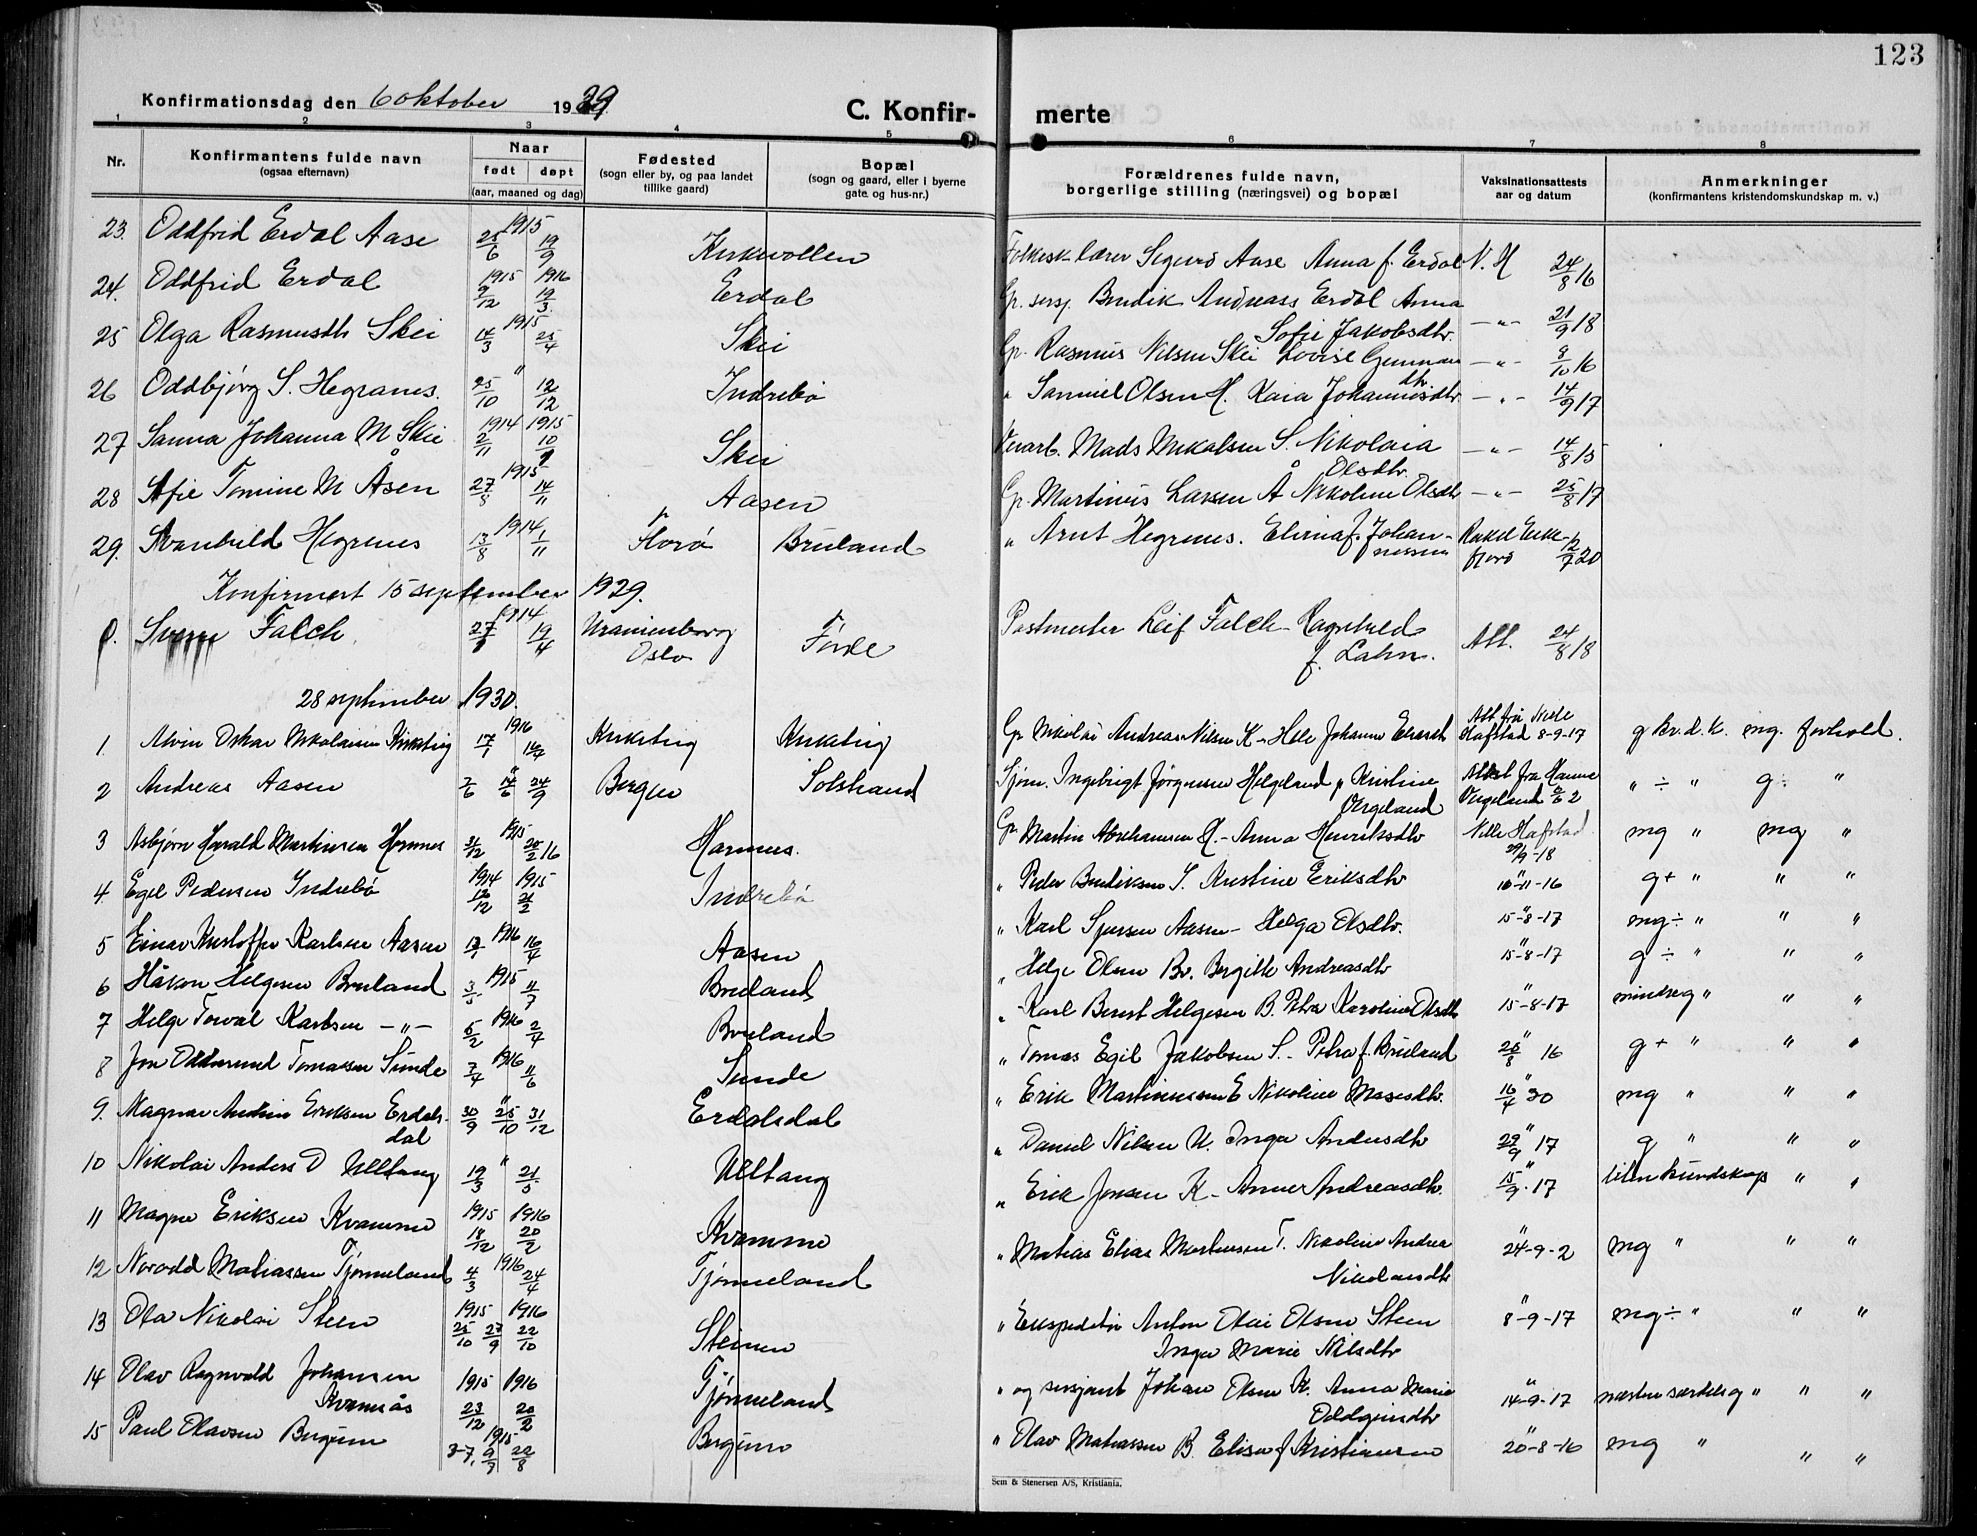 123
Konfirmationsdag den 6 oktober 1929
C. Konfir- merte
1 2 3 4 5 6 7 8
Nr. Konfirmantens fulde navn (ogsaa efternavn) Naar født døpt (aar, maaned og dag) Fødested (sogn eller by, og paa landet tillike gaard) Bopæl (sogn og gaard, eller i byerne gate og hus-nr.) Forældrenes fulde navn, borgerlige stilling (næringsvei) og bopæl Vaksinationsattests aar og datum Anmerkninger (konfirmantens kristendomskundskap m. v.)
23. Oddfrid Erdal Aase 1915 25/6 19/9 Kirkevollen Folkesk-lærer Sigurd Aase Anna f. Erdal N. H 24/8 16
24. Oddfrid Erdal 1915 1916 9/12 19/3 Erdal Gp. sersj. Bendik Andreass Erdal Anna Sofie Jakobsdtr. -"- 21/9 18
25 Olga Rasmusdtr Skei 1915 14/3 25/4 Skei Gp. Rasmus Nilsen Skei Lovise Gunnars dtr. -"- 8/10 16
26 Oddbjørg S. Hegranes. " 25/10 12/12 Indrebø " Samuel Olsen H. Kaia Johannesdtr -"- 14/9 17
27 Sanna Johanna M Skei 1914 1915 2/11 10/ Skei Mads Mikalsen S. Nikolaia Olsdtr. -"- 14/8 15
28 Sofie Tomine M Åsen 1915 27/8 14/11 Aasen Gp. Martinus Larsen Å Nikoline Olsdtr -"- 25/8 17
29. Svanhild Hegrenes 1914 13/8 1/11 Florø Bruland " Arnt Hegrenes. Elina f. Johannessen Rakel Eikefjord 12/7 20
Konfirmert 15 september 1929.
Falch. 1914 27/ 19/4 Uranienborg Oslo Førde Postmester Leif Falch - Ragnhild f. Lahn. Att. 24/8 18
28 september 1930.
1 Alvin Oskar Nikolaisen Kirketeig 1916 17/1 16/4 Kirketeig Kirketeig Gp Nikolai Andreas Nilsen K - Johanne Att fra Nille Hafstad 8-9-17 g kr.d.k. mg. forhold.
2 Andreas Aasen " 7/6 14/6 24/9 Bergen Solstrand Sjøm. Ingebrigt Jørgensen Helgeland, Kristine Vergeland Attest fra Hanna Vergeland " ÷ " g÷ "
3 Asbjørn Harald Martinsen Hornnes 1915 31/12 20/2 16 Hornnes. Gp Martin Abrahamsen H. - Anna Henriksdtr Nille Hafstad 29/9-18 mg " mg "
4 Egil Pedersen Indrebø 1914 1915 12/12 21/2 Indrebø " Peder Bendiksen I. Kristine Eriksdtr " 10-11-16 g+ " " "
5 Einar Kristoffer Karlsen Aasen 1916 16/4 Aasen " Karl Sjursen Aasen - Helga Olsdtr. 15-8-17 mg÷ " " "
6 Håkon Helgesen Bruland 1915 3/5 11/7 Bruland " Helge Olsen Br. Bergitte Andreasdtr 15-8-17 g÷ " " "
7 Helge Torval Karlsen -"- 1916 5/2 2/4 Bruland " Karl Berent Helgesen B. Petra Karoline Olsdtr " 15-8-17 mindre g " " "
8 Jon Oddmund Tomassen Sunde 1916 7/4 11/6 Sunde " Tomas Egil Jakobsen S. - Petra f. Bruland " 26/8 16 g+ " " "
9. Magnar Eriksen Erdalsdal " 30/9 25/10 31/12 Erdalsdal " Erik Martinussen E Nikoline Masesdtr. " 16/4 30 mg " " "
10 Nikolai Anders D Ulltang " 19/3 21/5 Ulltang " Daniel Nilsen U. Inga Andersdtr " 29/9 17 g " " "
11 Magne Eriksen Kvamme 1915 1916 18/12 20/2 Kvamme " Erik Jensen K - Anne Andreasdtr. " 15/9-17 liten kundskap " "
12 Norodd Matiassen Tjønneland 1916 4/3 24/4 Tjønneland " Matias Elias Mortensen T. Nikoline Andrea Nikolaisdtr " 24-9-2 mg " " "
13 Ola Nikolai Steen 1915 1916 25/10 27/9 22/10 Steinen " Ekspeditør Anton Olai Olsen Steen Inga Marie Nilsdtr " 8-9-17 mg÷ " " "
14 Olav Ragnvald Johansen Kvamsås 1915 1916 23/12 20/2 Tjønneland " og sersjant Johan Olsen K. Anna Marie Oddgeirsdtr " 14-9-17 næsten særdeles g " " "
15 Paul Olavsen Bergum 1915 3-7, 22/8 Bergum " Olav Matiassen B. Elisa f Kristiansen " 20-8-16 mg " " "
Sem & Stenersen A/S, Kristiania.